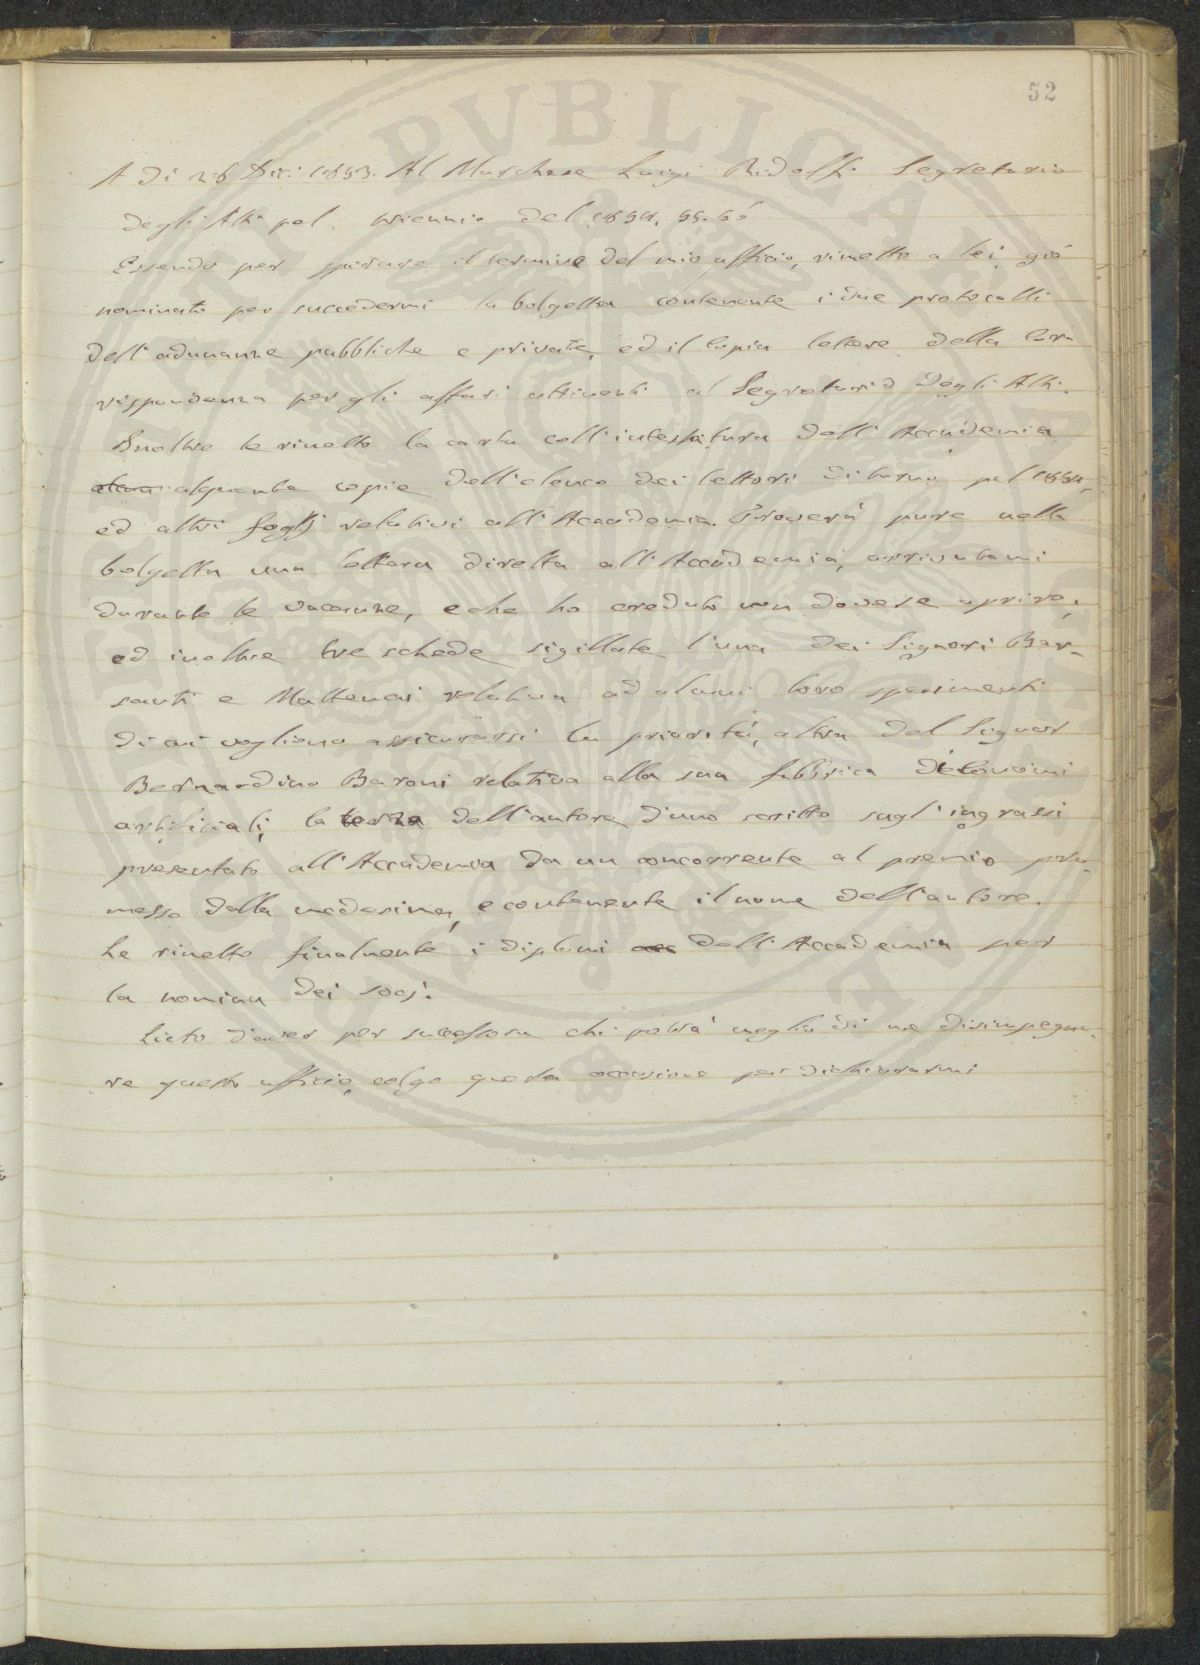 52
A di 28 Dic: 1853. Al Marchese Luigi Ridolfi Segretario
degli Atti pel triennio del 1854. 55. 56
Essendo per spirare il termine del mio ufficio, rimetto a lei, già
nominato per succedermi la bolgetta contenente i due protocolli
dell'adunanze pubbliche e private, ed il copia lettere della cor-
rispondenza per gli affari attinenti al Segretario degli Atti.
Inoltre le rimetto la carta coll'intestatura dell'Accademia
alquante copie dell'elenco dei lettori di turno pel 1854,
ed altri foglj relativi all'Accademia. Troverà pure nella
bolgetta una lettera diretta all'Accademia, arrivatami
durante le vacanze, e che ho creduto non dovere aprire,
ed inoltre tre schede sigillate l'una dei Signori Bar-
santi e Matteucci relativa ad alcuni loro sperimenti
di cui vogliono assicurarsi la priorità, altra del Signor
Bernardino Baroni relativa alla sua fabbrica di concimi
artificiali, la terza dell'autore d'uno scritto sugl'ingrassi
presentato all'Accademia da un concorrente al premio pro-
messo dalla medesima, e contenente il nome dell'autore.
Le rimetto finalmente i diplomi dell'Accademia per
la nomina dei socj.
Lieto d'aver per successore chi potrà meglio di me disimpegna-
re questo ufficio, colgo questa occasione per dichiararmi
PVBLICA